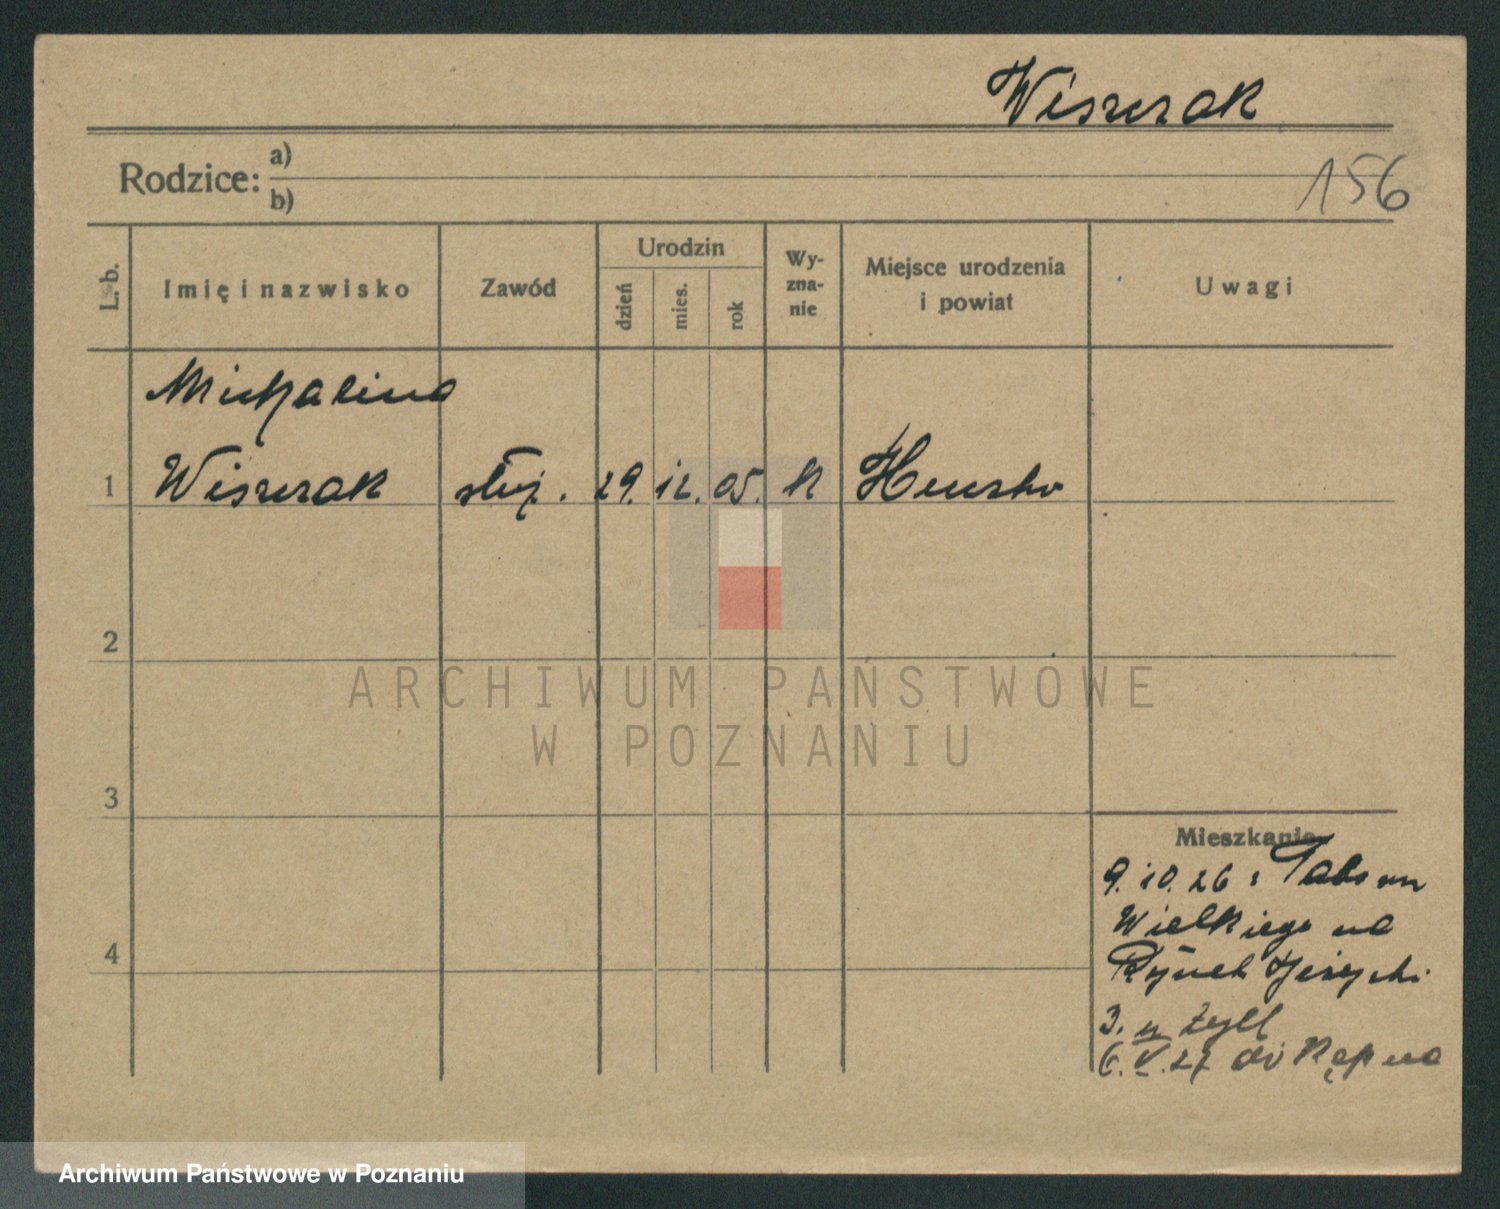 Wiszczak
Rodzice: a)
b)
156
L. b.
Imię i nazwisko
Zawód
Urodzin
dzień
mies.
rok
Wy-
zna-
nie
Miejsce urodzenia
i powiat
Uwagi
Michalina
1 Wiszczak służ. 29. 12. 05. k
2
3
4
Mieszkanie
9.10.26 :
Wielkiego na
Rynek Jeżycki
3. u
6.V.27 do Kępna
ARCHIWUM PAŃSTWOWE
W POZNANIU
Archiwum Państwowe w Poznaniu